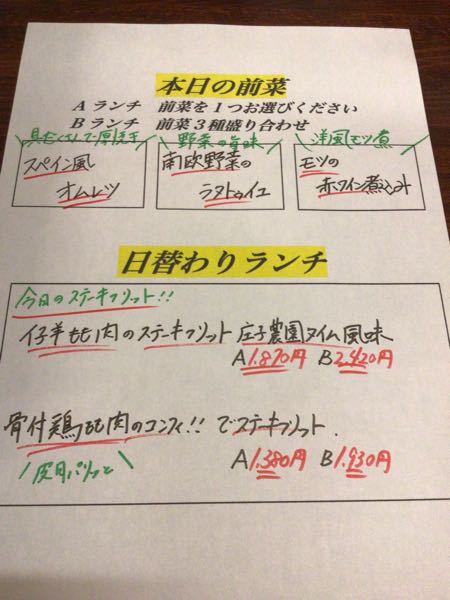 本日の前菜
Aランチ 前菜を1つお選びください
Bランチ 前菜3種盛り合わせ
具だくさんで厚焼き 野菜の旨味 洋風モツ煮
スペイン風 南欧野菜の モツの
オムレツ ラタトゥイユ 赤ワイン煮込み
日替わりランチ
今日のステーキフリット!!
仔羊もも肉のステーキフリット 庄子農園タイム風味
A1.870円 B2.420円
骨付鶏もも肉のコンフィ!! でステーキフリット.
皮目パリッと A1.380円 B1.930円